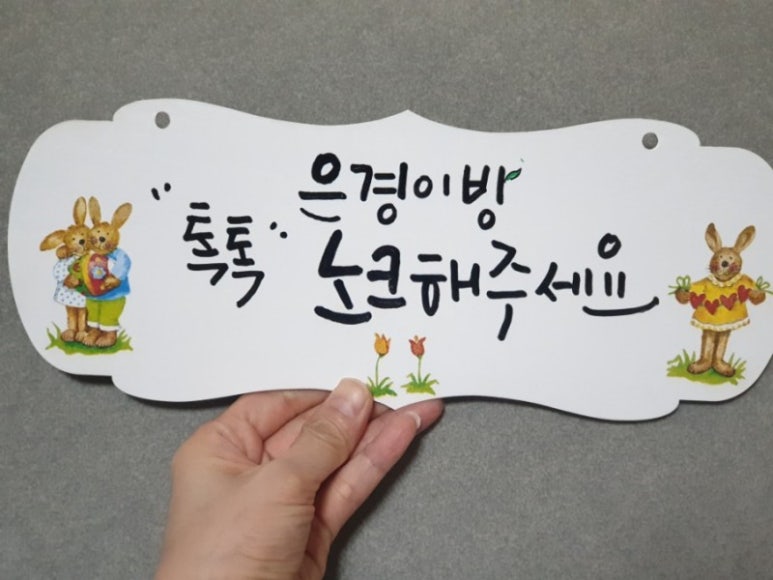 은경이방
"톡톡" 노크해주세요